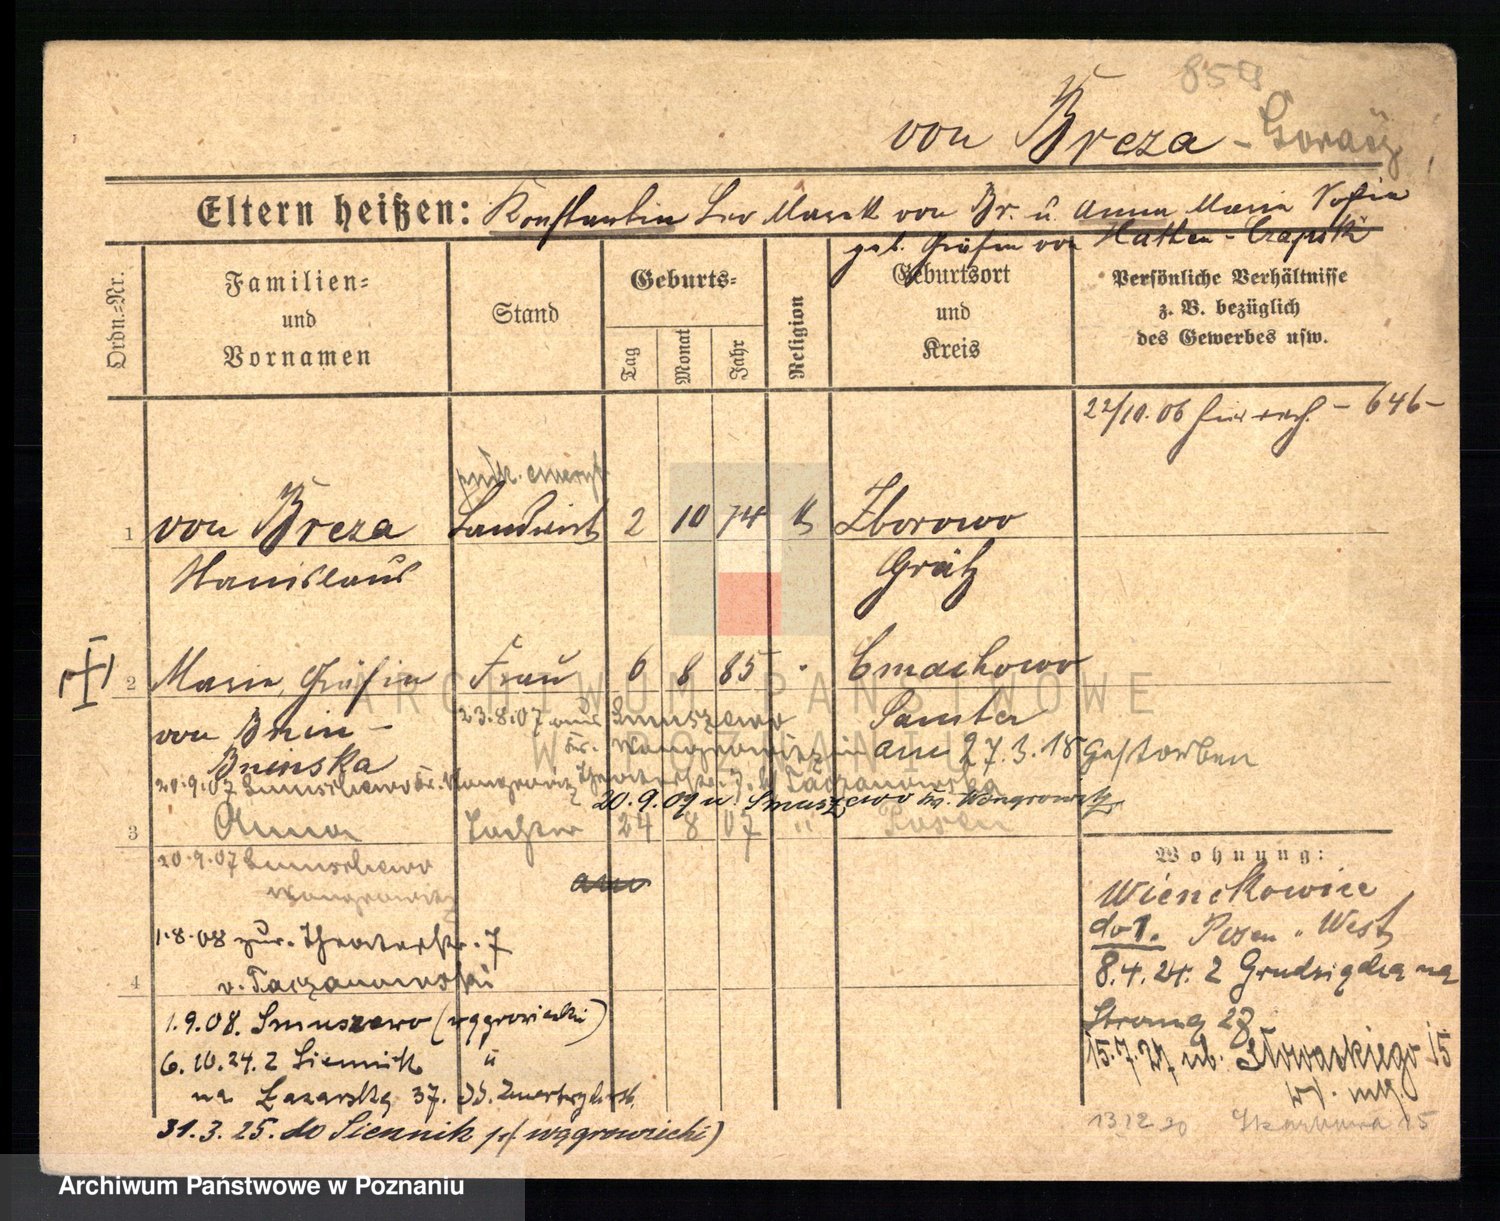 859
von Breza - Goraj
Eltern heißen: Konstantin Leo Marek von Br. u. Anna Maria Sofia
geb. Gräfin von Hutten-Czapski
Ordn.=Nr.
Familien=
und
Vornamen
Stand
Geburts=
Tag
Monat
Jahr
Religion
Geburtsort
und
Kreis
Persönliche Verhältnisse
z. B. bezüglich
des Gewerbes usw.
22/10.06 - 646-
1 von Breza Landwirt 2 10 74 k Zborowo
Stanislaus Grätz
2 Marie, Gräfin Frau 6 8 85 " Cmachowo
von Bnin - Samter
Bninska
23.8.07 aus Smuszewo
Kr. Wongrowitz
am 27.3.18 Gestorben
20.9.07 Smuschewo Kr. Wongrowitz Theaterstr. 7. b/ Taczanowska
20.9.09 n. Smuszewo Kr. Wongrowitz
3 Anna Tochter 24 8 07 " Posen
20.9.07 Smuschewo
Wongrowitz
am
1.8.08 zur. Theaterstr. 7
v. Taczanowski
4
1.9.08. Smuszewo (wągrowiecki)
6.10.24. z Siennik
na Łazarską 37.
31.3.25. do Siennik (wągrowiecki)
Wohnung:
Wienckowice
do 1. Posen - West
8.4.24. z Grudziądza na
Stromą 28
15.7.27 ul. Słowackiego 15
13.12.20 Skarbowa 15
ARCHIWUM PAŃSTWOWE
W POZNANIU
Archiwum Państwowe w Poznaniu